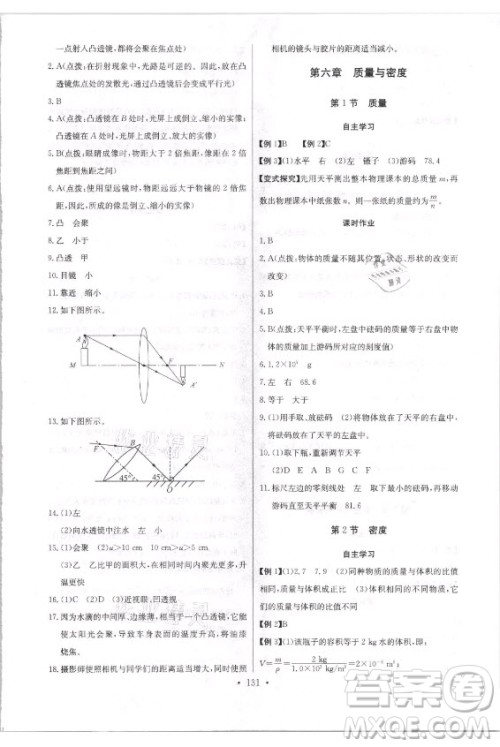 一点射入凸透镜，都将会聚在焦点处）
2. A（点拨：在折射现象中，光路是可逆的，由凸透镜焦点处的发散光，通过凸透镜后变为平行光）
3. B
4. A（点拨：凸透镜在A处时，光屏上成倒立、放大的实像；凸透镜在B处时，光屏上成倒立、缩小的实像）
5. B（点拨：眼睛成像时，像距不变，物距改变，改变焦距）
6. A（点拨：使用望远镜时，物体通过物镜成倒立、缩小的实像）
7. 凸 会聚
8. 乙 小于
9. 凸透 甲
10. 目镜 小
11. 靠近 缩小
12. 如下图所示。
A
M
F
N
A'
13. 如下图所示。
F
45°
45°
O
14. (1)左
(2)向水透镜中注水 左 小
15. (1)会聚 (2)u>10 cm u>5 cm
(3)甲 乙 乙比甲的直径大，在相同时间内会聚的光更多
16. (1)C (2)D (3)近视眼、凹透镜
17. 因为水滴的中间厚、边缘薄，形成水凸透镜，它能使太阳光会聚，使草叶的温度升高，草叶会因温度过高而灼伤。
18. 摄影师给照相机与同学们的距离适当增大，并把照
相机的镜头与胶片的距离适当减小。
第六章 质量与密度
第1节 质量
自主学习
【例1】B 【例2】C
【例3】(1)水平 右 (2)左 镊子 (3)游码 78.4
【变式探究】先用天平测出整本物理课本的总质量m，再数出物理课本中纸张数n，一张纸的质量为m/n。
课时作业
1. B
2. A（点拨：物体的质量不随其位置、状态、形状的改变而改变）
3. B
4. B
5. A（点拨：天平平衡时，左盘中砝码的质量等于右盘中物体的质量加上游码所对应的刻度值）
6. 1.2×10³ g
7. 左 右 68.6
8. 等于 大于
9. (1)用手取、放砝码 (2)将砝码放在天平的右盘中，将被测物体放在天平的左盘中
10. (1)取下瓶、钮，重新调节天平
(2)D E A B C G F
11. 标尺左边的零刻线处 指针静止时指在分度盘的中央刻度线处 游码 81.6
第2节 密度
自主学习
【例1】(1)2.7 7.9 (2)同种物质的质量与体积的比值相同 (3)不同物质的质量与体积的比值一般不同
【例2】B
【例3】(1)该瓶子的容积等于2 kg水的体积，则
V=m/ρ=2 kg/1.0×10³ kg/m³=2×10⁻³ m³=2 L
· 131 ·